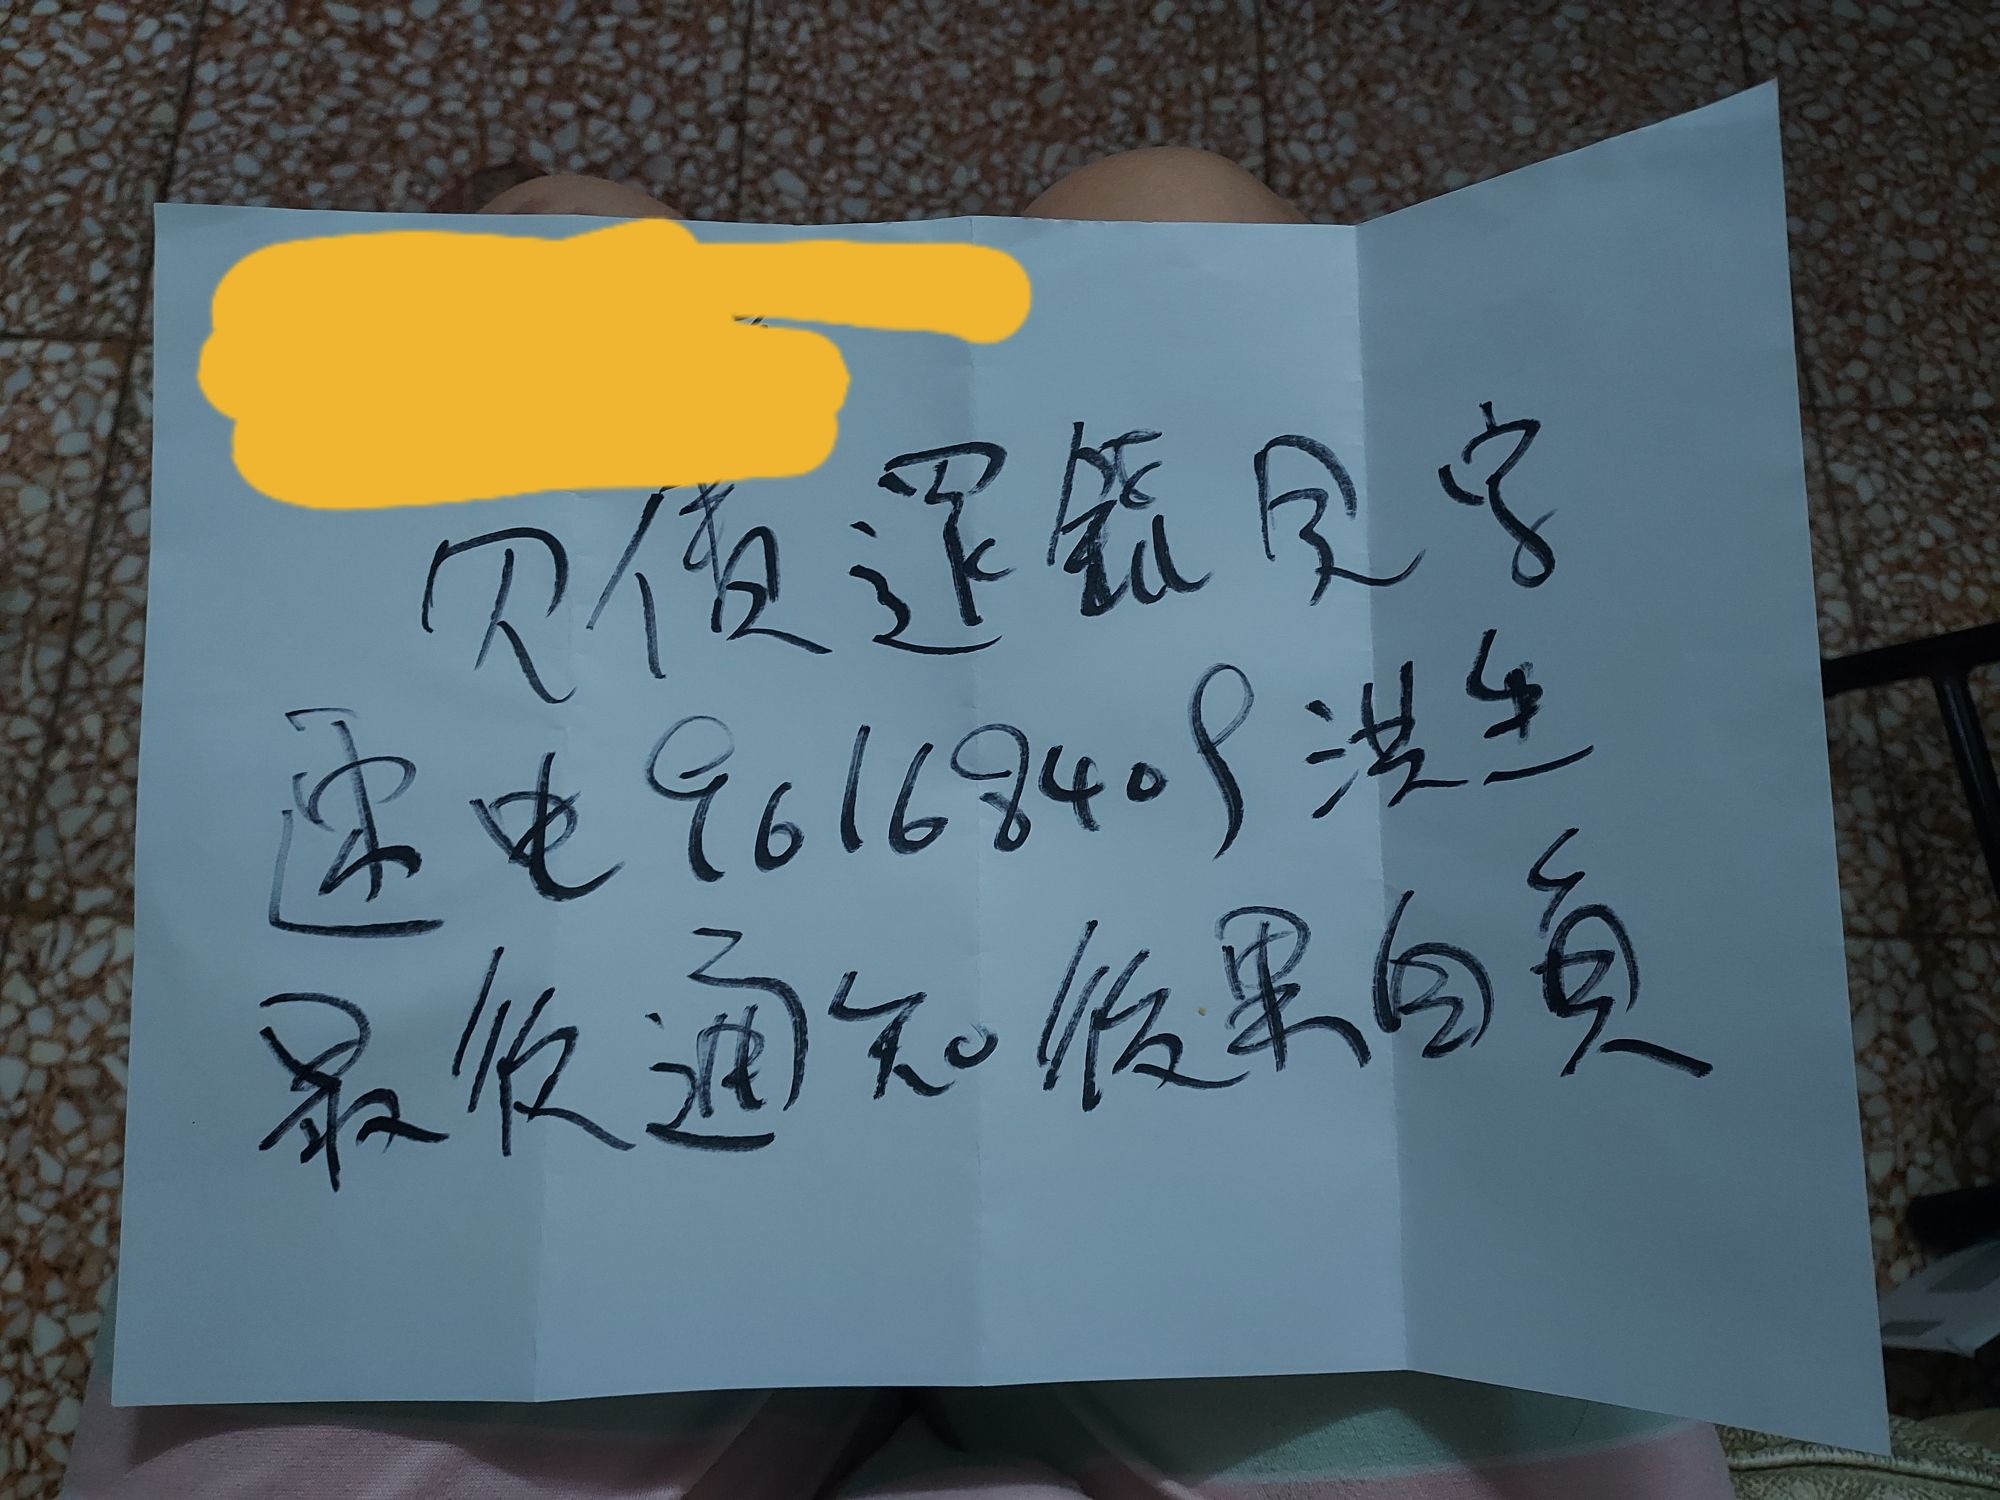 欠債還錢見字
速电96168409洪生
最後通知後果自負